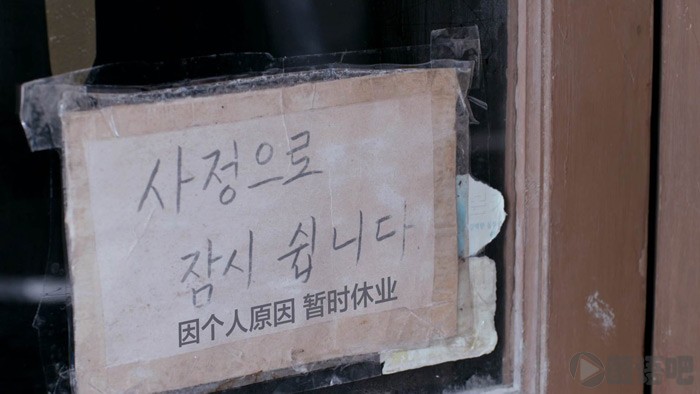 사정으로
잠시 쉽니다
因个人原因 暂时休业